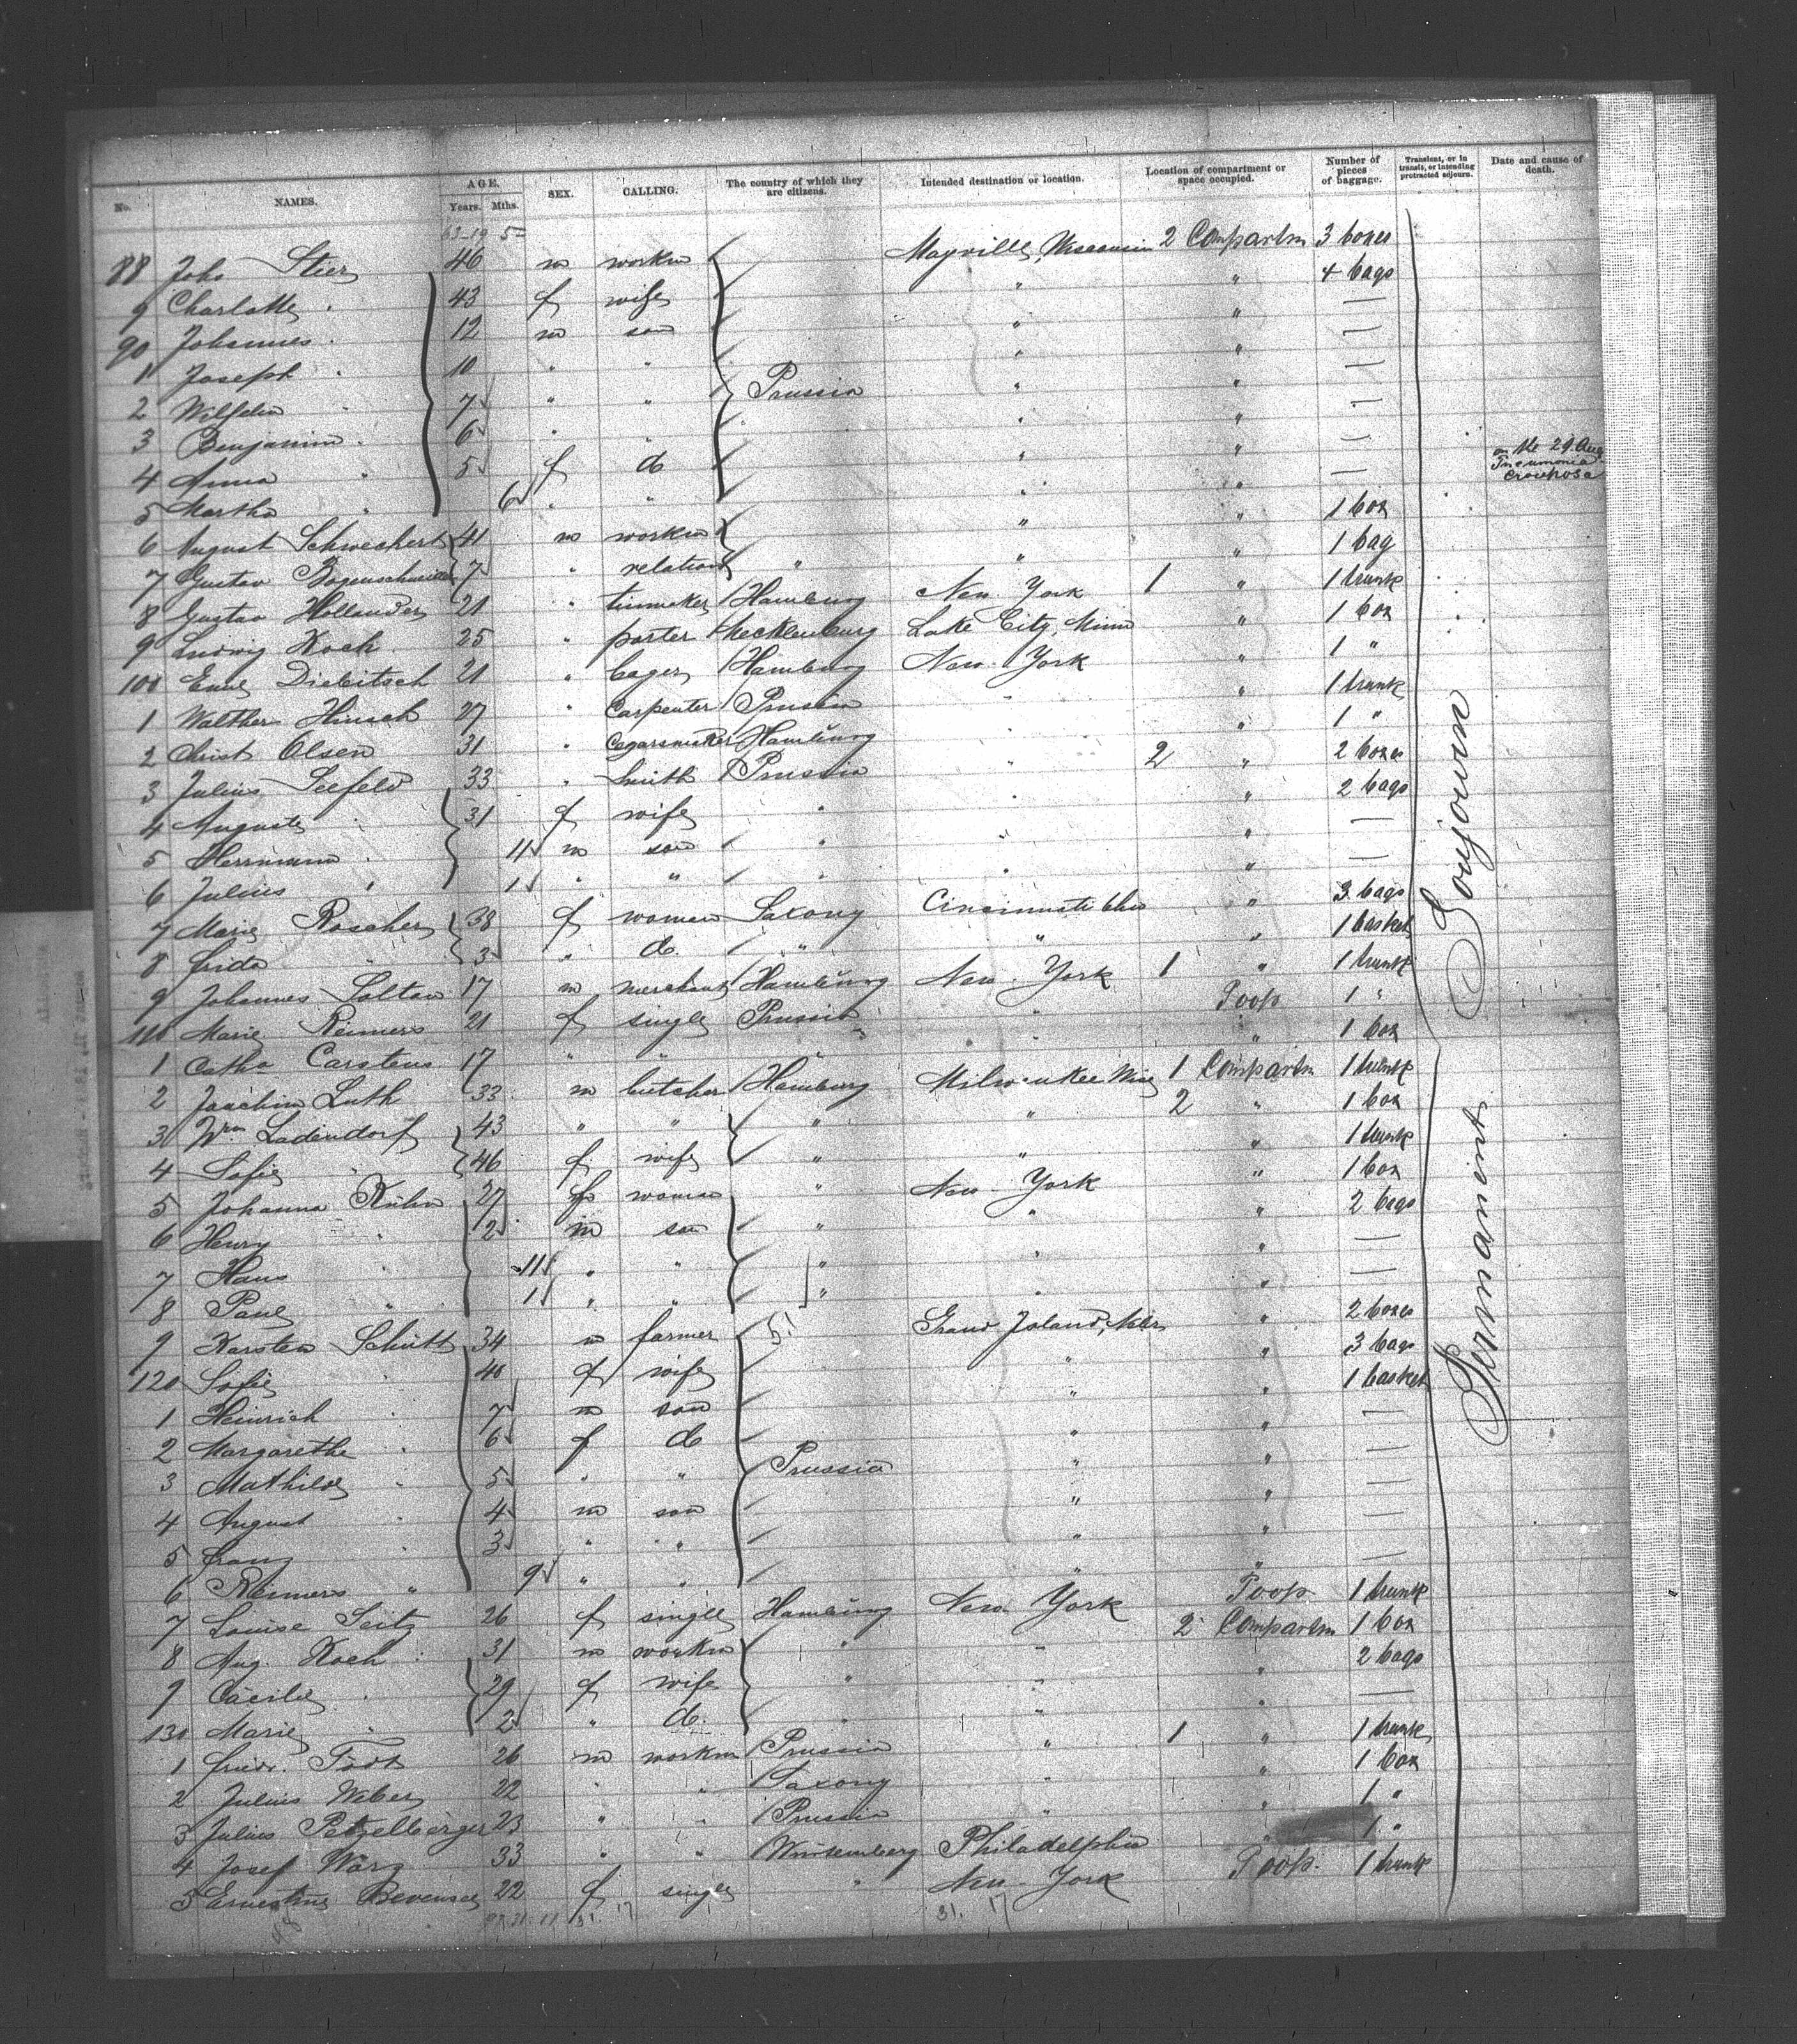 No. NAMES. AGE. Years. Mths. SEX. CALLING. The country of which they are citizens. Intended destination or location. Location of compartment or space occupied. Number of pieces of baggage. Transient, or in transit, or intending protracted sojourn. Date and cause of death.
63-19 5-
88 Joho Stier 46 m workm Mayville, Wisconsin 2 Compartm 3 boxes
9 Charlotte " 43 f wife " " 4 bags
90 Johannes " 12 m son " " —
1 Joseph " 10 " " " " —
2 Wilhelm " 7 " " Prussia " " —
3 Benjamin " 6 " " " " —
4 Anna " 5 f do " " —
5 Martha " 6 " " " " — on the 29. Aug Pneumonia crouposa
6 August Schweckert 41 m workm " " 1 box
7 Gustav 7 " relation " " " 1 bag
8 Gustav Hollander 21 " tinmaker Hamburg New York 1 " 1 trunk
9 Ludwig Koch 25 " porter Mecklenburg Lake City, Minn " 1 box
100 Emil Diebitsch 21 " Hamburg New York " 1 "
1 Walther Hinsch 27 " carpenter Prussia " " 1 trunk
2 Christ Olsen 31 " Cigarsmaker Hamburg " " 1 "
3 Julius Seefeld 33 " Smith Prussia " 2 " 2 boxes
4 Auguste " 31 f wife " " " 2 bags
5 Herrmann " 11 m son " " " —
6 Julius " 1 " " " " " —
7 Marie Roscher 38 f woman Saxony Cincinnati Ohio " 3 bags
8 Frida " 3 " do. " " " 1 basket
9 Johannes Soltau 17 m merchant Hamburg New York 1 " 1 trunk
110 Marie Reimers 21 f single Prussia " Poop 1 "
1 Catha Carstens 17 " " " " " 1 box
2 Joachim Luth 33 m butcher Hamburg Milwaukee Wisc 1 Compartm 1 trunk
3 Wm Ladendorf 43 " " " " 2 " 1 box
4 Sofie " 46 f wife " " " 1 trunk
5 Johanna Kühn 27 f woman " New York " 1 box
6 Henry " 2 m son " " " 2 bags
7 Hans " 11 " " " " " —
8 Paul " 1 " " " " " —
9 Karsten Schütt 34 m farmer Grand Island, Nebr " 2 boxes
120 Sofie " 40 f wife " " 3 bags
1 Heinrich " 7 m son " " 1 basket
2 Margarethe " 6 f do " " —
3 Mathilde " 5 " " Prussia " " —
4 August " 4 m son " " —
5 Franz " 3 " " " " —
6 Reimers " 9 " " " " —
7 Louise Seitz 26 f single Hamburg New York Poop 1 trunk
8 Aug. Koch 31 m workm " " 2 Compartm 1 box
9 Cäcilie " 29 f wife " " " 2 bags
130 Marie " 2 " do. " " " —
1 Friedr. Tödt 26 m workm Prussia " 1 " 1 trunk
2 Julius Weber 22 " " Saxony " " 1 box
3 Julius Petzelberger 23 " " Prussia " " 1 "
4 Josef Wörz 33 " " Würtemberg Philadelphia " 1 "
5 Ernestine Bevensee 22 f single " New York Poop. 1 trunk
31. 17 31. 17
Permanent Soujourn